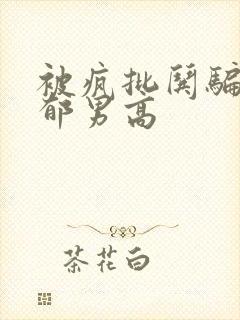 被疯批闺骗
郁男高
茶花白